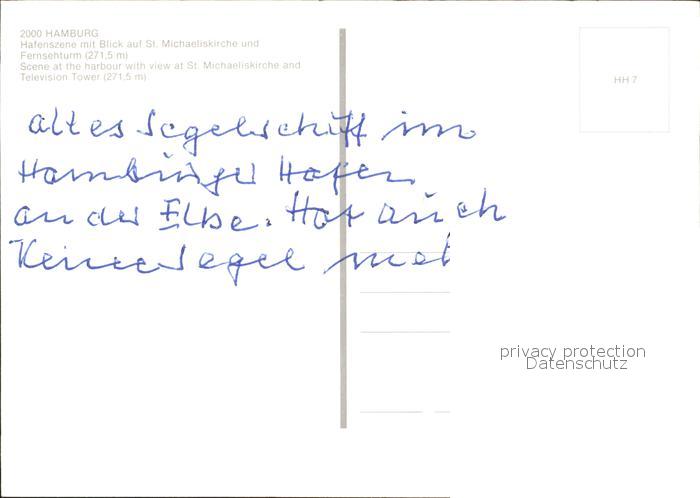 2000 HAMBURG
Hafenszene mit Blick auf St. Michaeliskirche und
Fernsehturm (271,5 m)
Scene at the harbour with view at St. Michaeliskirche and
Television Tower (271,5 m)
HH 7
altes Segelschiff im
Hamburger Hafen
an der Elbe. Hat auch
Keine Segel
privacy protection
Datenschutz